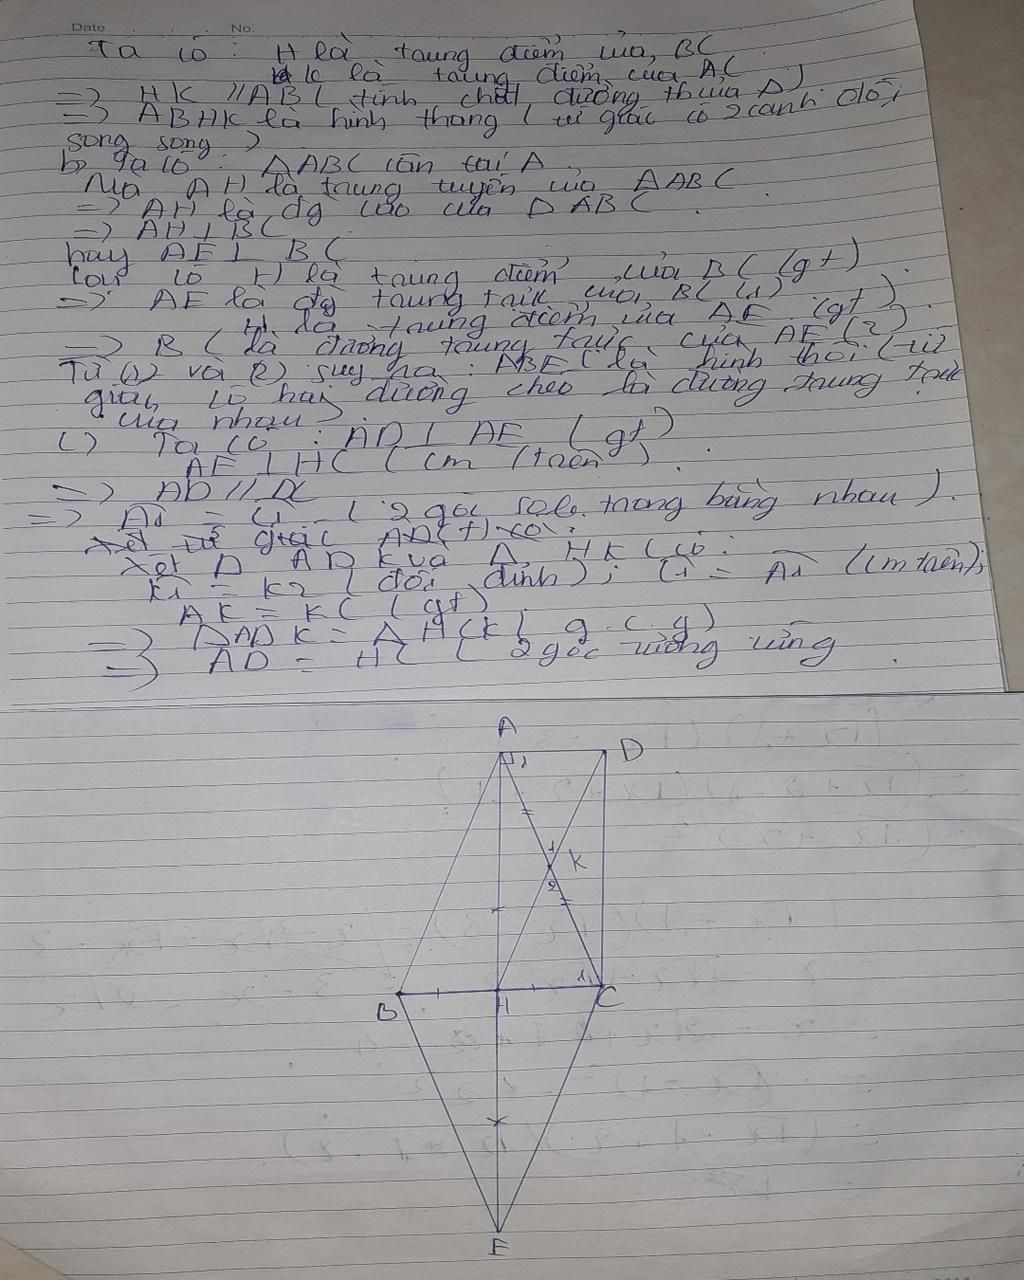 Date No.
Ta có : H là trung điểm của BC
K là trung điểm của AC
=> HK // AB ( tính chất đường tb của Δ )
=> ABHK là hình thang ( tứ giác có 2 cạnh đối
song song )
b, Ta có : ΔABC cân tại A
Mà AH là trung tuyến của ΔABC
=> AH là đg cao của ΔABC
=> AH ⊥ BC
hay AE ⊥ BC
Lại có H là trung điểm của BC (gt)
=> AE là đg trung trực của BC (1)
H là trung điểm của AE (gt)
=> BC là đường trung trực của AE (2)
Từ (1) và (2) suy ra : ABEC là hình thoi ( tứ
giác có hai đường chéo là đường trung trực
của nhau
c) Ta có : AD ⊥ AE (gt)
AE ⊥ HC ( cm trên )
=> AD //
=> A1 = C1 ( 2 góc sole trong bằng nhau ).
Xét tứ giác
Xét Δ ADK và Δ HKC có :
K1 = K2 ( đối đỉnh ) ; C1 = A1 (cm trên);
AK = KC ( gt )
=> ΔADK = Δ HCK ( g.c.g )
=> AD = HC ( 2 góc tương ứng
A
D
2
1
K
2
1
B
H
C
E